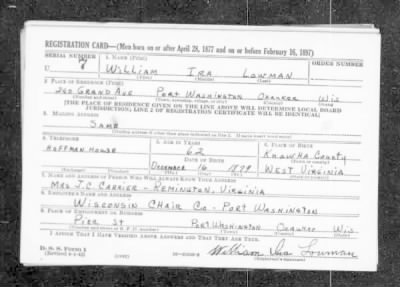 REGISTRATION CARD—(Men born on or after April 28, 1877 and on or before February 16, 1897)
SERIAL NUMBER 1. NAME (Print) ORDER NUMBER
U WILLIAM IRA LOWMAN
(First) (Middle) (Last)
2. PLACE OF RESIDENCE (Print)
GRAND AVE PORT WASHINGTON WIS
(Number and street) (Town, township, village, or city) (County) (State)
[THE PLACE OF RESIDENCE GIVEN ON THE LINE ABOVE WILL DETERMINE LOCAL BOARD
JURISDICTION; LINE 2 OF REGISTRATION CERTIFICATE WILL BE IDENTICAL]
3. MAILING ADDRESS
SAME
[Mailing address if other than place indicated on line 2. If same insert word same]
4. TELEPHONE 5. AGE IN YEARS 6. PLACE OF BIRTH
HOFFMAN HOUSE 62 KNAWHA COUNTY
DATE OF BIRTH (Town or county)
DECEMBER 16 1879 WEST VIRGINIA
(Exchange) (Number) (Mo.) (Day) (Yr.) (State or country)
7. NAME AND ADDRESS OF PERSON WHO WILL ALWAYS KNOW YOUR ADDRESS
MRS J.C. CARRIER - REMINGTON, VIRGINIA
8. EMPLOYER'S NAME AND ADDRESS
WISCONSIN CHAIR CO - PORT WASHINGTON
9. PLACE OF EMPLOYMENT OR BUSINESS
PIER ST PORT WASHINGTON OZAUKEE WIS
(Number and street or R. F. D. number) (Town) (County) (State)
I AFFIRM THAT I HAVE VERIFIED ABOVE ANSWERS AND THAT THEY ARE TRUE.
D. S. S. Form 1
(Revised 4-1-42) (over) William Ira Lowman
(Registrant's signature)